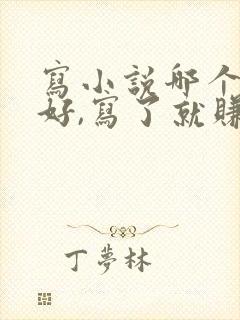 寫小説哪个
好,寫了就賺
丁夢林